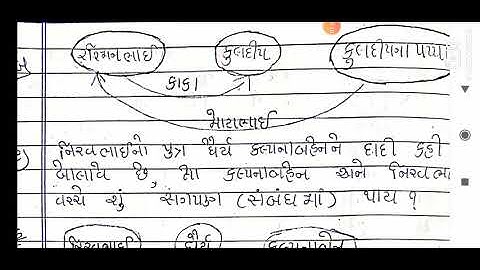 રશ્મિનભાઈ કુલદીપ કુલદીપના પપ્પા
કાકા
મોટાભાઈ
નિરવભાઈનો પુત્ર ધૈર્ય કલ્પનાબહેનને દાદી કહી
બોલાવે છે, મા કલ્પનાબહેન અને નિરવભા
વચ્ચે શું સગપણ (સંબંધમાં) થાય ?
નિરવભાઈ ધૈર્ય કલ્પનાબેન